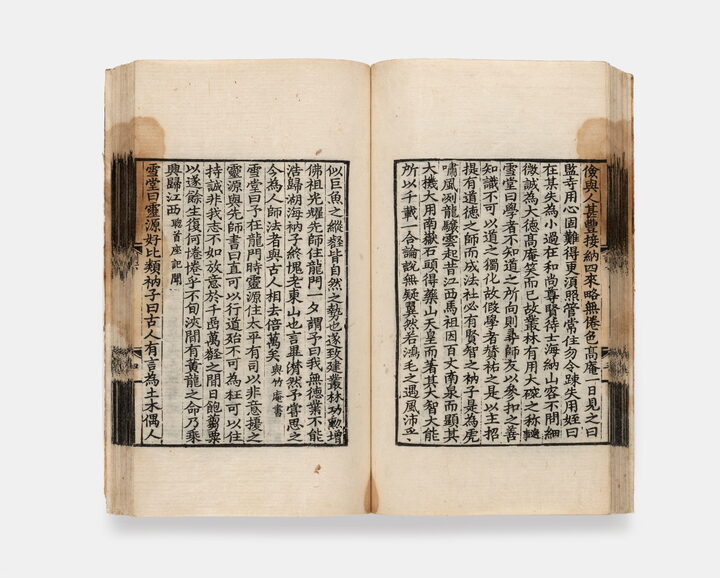 儉與人甚豐接納四來略無倦色高庵一日見之曰
監寺用心固難得更須照管常住勿令踈失用姪曰
在某失為小過在和尚尊賢待士海納山容不問細
微誠為大德高庵笑而已故叢林有用大碗之称
雪堂曰學者不知道之所向則尋師友以參扣之善
知識不可以道之獨化故假學者賛祐之是以主招
提有道德之師而成法社必有賢智之衲子是為虎
嘯風冽龍驤雲起昔江西馬祖因百丈南泉而顯其
大機大用南嶽石頭得藥山天皇而著其大智大能
所以千載一合論說無疑翼然若鴻毛之遇風沛乎
似巨魚之縱壑皆自然之勢也遂致建叢林功勲增
佛祖光耀先師住龍門一夕謂予曰我無德業不能
浩歸湖海衲子終愧老東山也言畢潸然予嘗思之
今為人師法者與古人相去倍萬矣與竹庵書
雪堂曰予在龍門時靈源住太平有司以非意擾之
靈源與先師書曰直可以行道殆不可為枉可以住
持誠非我志不如放意於千嵒萬壑之間日飽蒭粟
以遂餘生復何惓惓乎不旬浹間有黃龍之命乃乘
興歸江西聰首座記聞
雪堂曰靈源好比類衲子曰古人有言為土木偶人